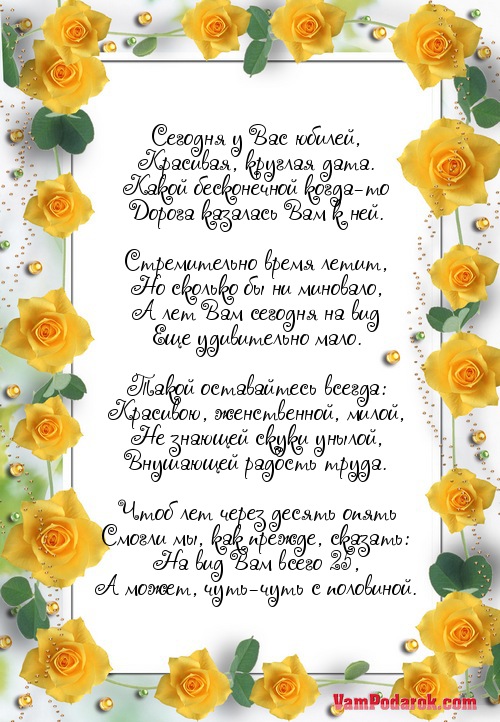 Сегодня у Вас юбилей,
Красивая, круглая дата.
Какой бесконечной когда-то
Дорога казалась Вам к ней.
Стремительно время летит,
Но сколько бы ни миновало,
А лет Вам сегодня на вид
Еще удивительно мало.
Такой оставайтесь всегда:
Красивою, женственной, милой,
Не знающей скуки унылой,
Внушающей радость труда.
Чтоб лет через десять опять
Смогли мы, как прежде, сказать:
На вид Вам всего 25,
А может, чуть-чуть с половиной.
VamPodarok.com